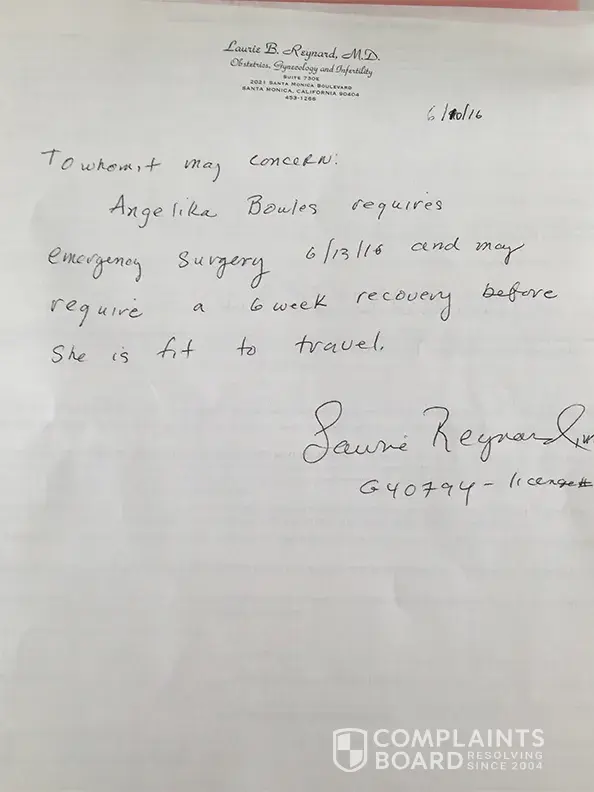 Laurie B. Reynard, M.D.
Obstetrics, Gynecology and Infertility
SUITE 730E
2021 SANTA MONICA BOULEVARD
SANTA MONICA, CALIFORNIA 90404
453-1266
6/10/16
To whom it may concern:
Angelika Boules requires
emergency surgery 6/13/16 and may
require a 6 week recovery before
she is fit to travel.
Laurie Reynard, M
G40794 - license#
COMPLAINTS
BOARD RESOLVING
SINCE 2004